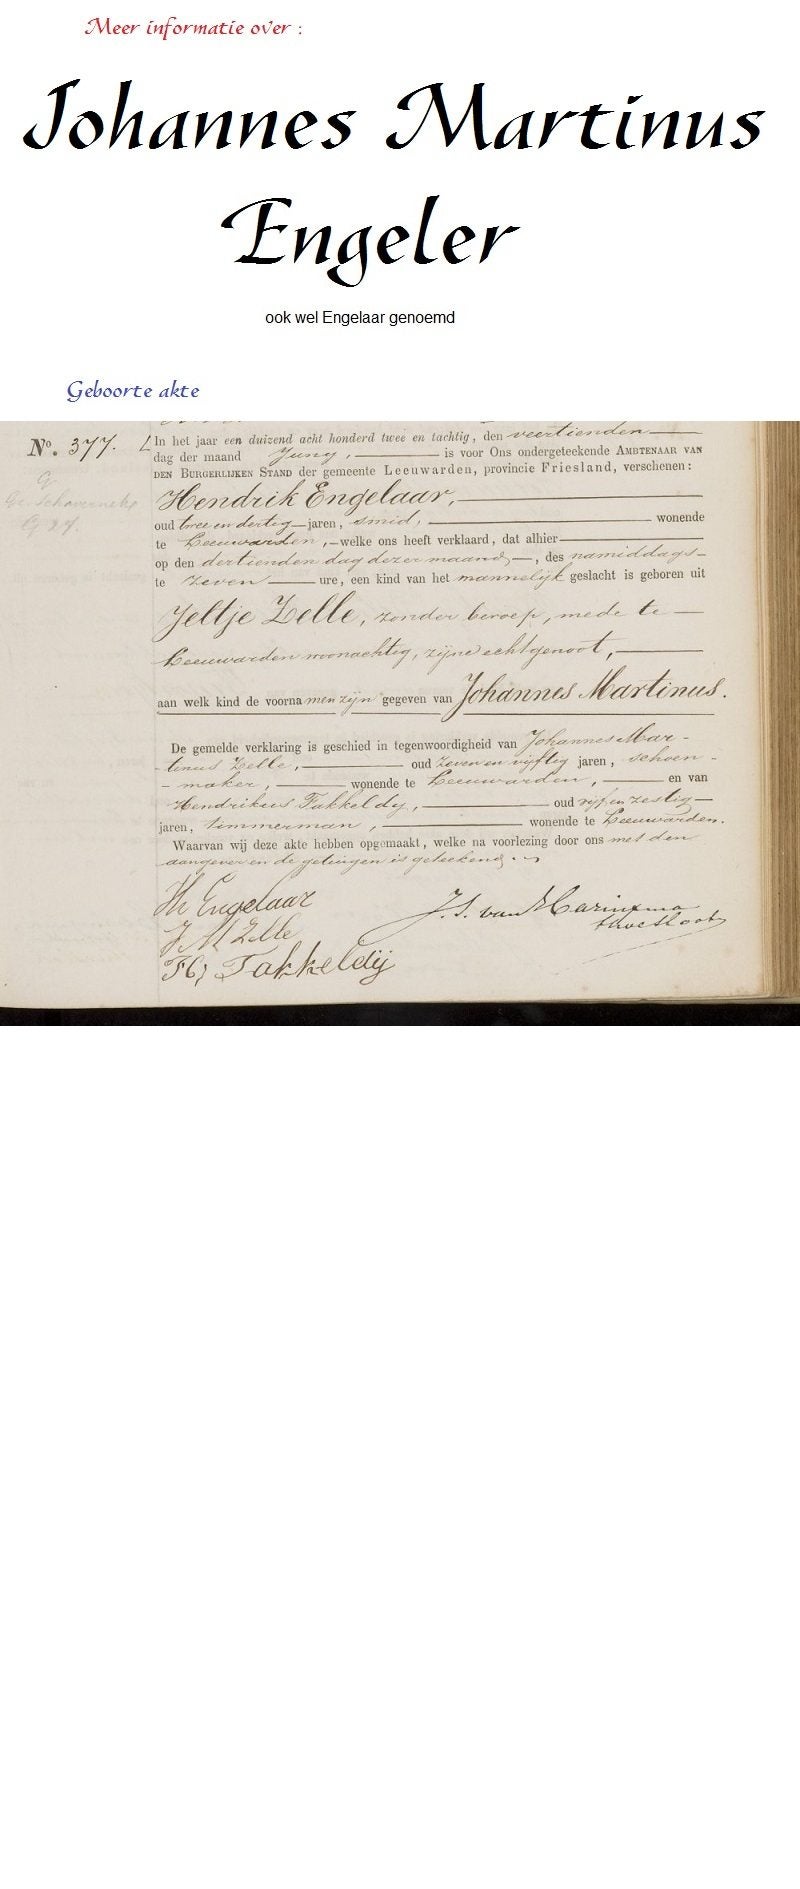 Meer informatie over :
Johannes Martinus
Engeler
ook wel Engelaar genoemd
Geboorte akte
No. 377.
In het jaar een duizend acht honderd twee en tachtig, den veertienden
dag der maand Juny, is voor Ons ondergeteekende AMBTENAAR VAN
DEN BURGERLIJKEN STAND der gemeente Leeuwarden, provincie Friesland, verschenen:
Hendrik Engelaar,
oud twee en dertig jaren, smid, wonende
te Leeuwarden, welke ons heeft verklaard, dat alhier
op den dertienden dag dezer maand, des namiddags
te zeven ure, een kind van het mannelijk geslacht is geboren uit
Jeltje Zelle, zonder beroep, mede te
Leeuwarden woonachtig, zijne echtgenoot,
aan welk kind de voornamen zijn gegeven van Johannes Martinus.
De gemelde verklaring is geschied in tegenwoordigheid van Johannes Mar-
tinus Zelle, oud zeven en vijftig jaren, schoen-
maker, wonende te Leeuwarden, en van
Hendrikus Takkeldy, oud vijf en zestig
jaren, timmerman, wonende te Leeuwarden.
Waarvan wij deze akte hebben opgemaakt, welke na voorlezing door ons met den
aangever en de getuigen is geteekend.
H Engelaar
J M Zelle
Takkeldij
J. S. van Harinxma
thoe Slooten